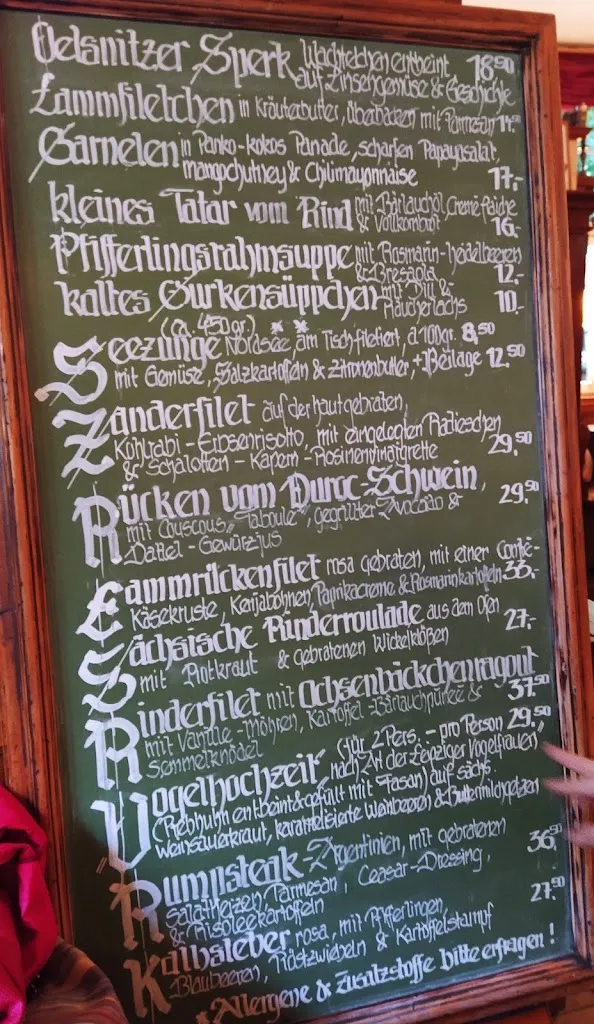 Oelsnitzer Sperk Wachtelchen entbeint
auf Linsengemüse & Geschichte 18.90
Lammfiletchen in Kräuterbutter, überbacken mit Parmesan
Garnelen in Panko-Kokos Panade, scharfen Papayasalat,
mangochutney & Chilimayonnaise 17,-
kleines Tatar vom Rind mit Bärlauchöl, Creme fraiche
& Vollkornbrot 16,-
Pfifferlingsrahmsuppe mit Rosmarin-Heidelbeeren
& Bresaola 12,-
kaltes Gurkensüppchen mit Dill &
Räucherlachs 10,-
(ca. 450gr.)
Seezunge Nordsee, am Tisch filetiert, à 100gr. 8,50
mit Gemüse, Salzkartoffeln & Zitronenbutter, + Beilage 12,50
Zanderfilet auf der haut gebraten,
Kohlrabi-Erbsenrisotto, mit eingelegten Radieschen
& Schalotten-Kapern-Rosinenvinaigrette 29,50
Rücken vom Duroc-Schwein,
mit Couscous "Taboulé", gegrillter Avocado &
Dattel-Gewürzjus 29,50
Lammrückenfilet rosa gebraten, mit einer Comté-
Käsekruste, Kenjabohnen, Paprikacreme & Rosmarinkartoffeln 33,-
Sächsische Rinderroulade aus dem Ofen
mit Rotkraut & gebratenen Wickelklößen 27,-
Rinderfilet mit Ochsenbäckchenragout
mit Vanille-Möhren, Kartoffel-Bärlauchpüree & 37,50
Semmelknödel
"Vogelhochzeit" (für 2 Pers. - pro Person 29.50
nach Art der Leipziger Vogelfrauen"
(Rebhuhn entbeint & gefüllt mit Fasan) auf sächs.
Weinsauerkraut, karamellisierte Weinbeeren & Buttermilchgetzen
Rumpsteak-Argentinien, mit gebratenen
Salatherzen, Parmesan, Ceasar-Dressing,
& Risoleekartoffeln 36,50
Kalbsleber rosa, mit Pfifferlingen,
Blaubeeren, Röstzwiebeln & Kartoffelstampf 27.90
* Allergene & Zusatzstoffe bitte erfragen!